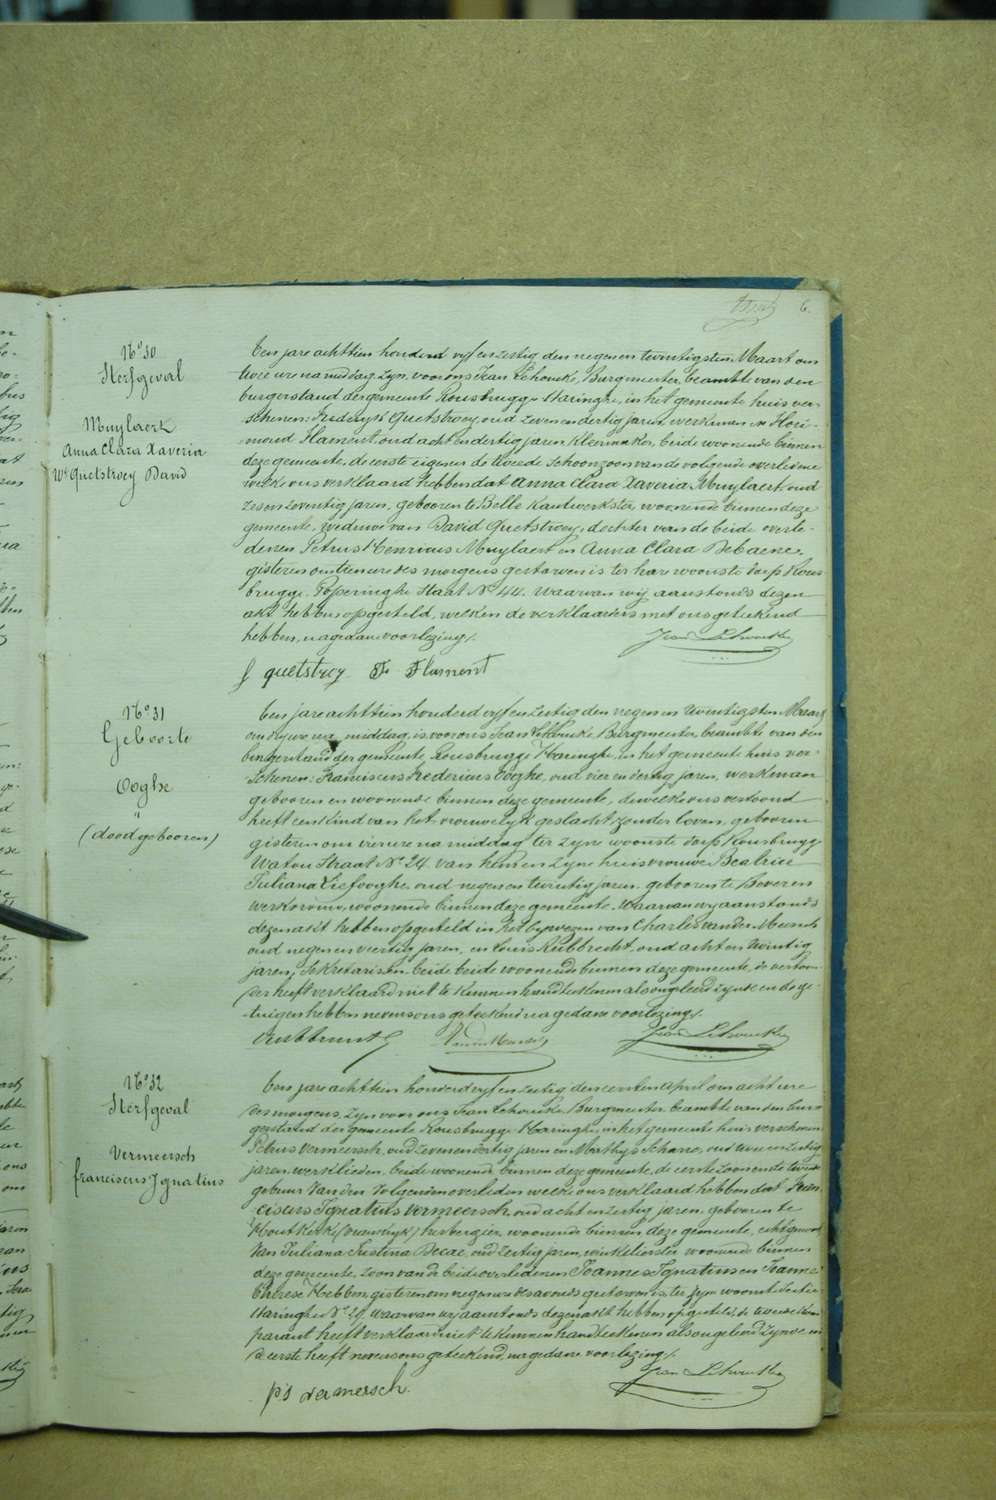 6.
N° 30
Sterfgeval
Muylaert
Anna Clara Xaveria
We Quetstroey David
Een jare achttien honderd vyf en zestig den negen en twintigsten Maart om
twee ure namiddag, zyn voor ons Jean Lehoucke, Burgmeester, beambte van den
burgerstand der gemeente Rousbrugge-Haringhe, in het gemeente huis ver-
schenen: Frederyk Quetstroey, oud zeven en dertig jaren, werkman en Flori-
mond Flament, oud acht en dertig jaren kleermaker, beide woonende binnen
deze gemeente, de eerste eigen en de tweede schoonzoon van de volgende overledene
welke ons verklaard hebben dat Anna Clara Xaveria Muylaert, oud
zes en zeventig jaren, geboren te Belle kantwerkster, woonende binnen deze
gemeente, weduwe van David Quetstroey, dochter van de beide overle-
denen Petrus Henricus Muylaert en Anna Clara Debaene,
gisteren om tien ure des morgens gestorven is ter hare woonste dorp Rous-
brugge, Poperinghe Straat N° 44. Waarvan wy aanstonds dezen
akt hebben opgesteld, welken de verklaarders met ons geteekend
hebben, na gedane voorlezing.
Jean Lehoucke
f quetstroy F Flament
N° 31
Geboorte
Ooghe
"
(dood geboren)
Een jare achttien honderd vyf en zestig den negen en twintigsten Maart
om dry ure na middag, is voor ons Jean Lehoucke Burgmeester, beambte van den
burgerstand der gemeente Rousbrugge Haringhe, in het gemeente huis ver-
schenen: Franciscus Fredericus Ooghe, oud vier en dertig jaren, werkman
geboren en woonende binnen deze gemeente, dewelke ons vertoond
heeft een kind van het vrouwelyk geslacht zonder leven, geboren
gisteren om vier ure na middag ter zyne woonste dorp Rousbrugge
Watou Straat N° 24 van hem en zyne huisvrouwe Beatrice
Juliana Liefooghe, oud negen en twintig jaren, geboren te Beveren
werkvrouw, woonende binnen deze gemeente. Waarvan wy aanstonds
dezen akt hebben opgesteld in het bywezen van Charles van der Meersch
oud negen en veertig jaren, en Louis Rubbrecht, oud acht en twintig
jaren, sekretarissen beide woonende binnen deze gemeente, de vertoon-
der heeft verklaard niet te kunnen handteekenen als ongeleerd zynde en de ge-
tuigen hebben nevens ons geteekend na gedane voorlezing.
Jean Lehoucke
N° 32
Sterfgeval
Vermeersch
franciscus Ignatius
Een jare achttien honderd vyf en zestig den eersten April om acht ure
des morgens, zyn voor ons Jean Lehoucke Burgmeester, beambte van den bur-
gerstand der gemeente Rousbrugge Haringhe, in het gemeente huis verschenen
Petrus Vermeersch, oud zeven en dertig jaren en Mathys Schare, oud twee en zestig
jaren, werklieden, beide woonende binnen deze gemeente, de eerste zoon en de tweede
gebuur van den volgenden overleden welke ons verklaard hebben dat Fran-
ciscus Ignatius Vermeersch, oud acht en zestig jaren, geboren te
Houtkerke (Frankryk) herbergier, woonende binnen deze gemeente, echtgenoot
van Juliana Justina Decae, oud zestig jaren, winkelierster woonende binnen
deze gemeente, zoon van de beide overledenen Joannes Ignatius en Jeanne
Therese Hebben, gisteren om negen ure des avonds gestorven is ter zyne woonst
Haringhe N° 29, waarvan wy aanstonds dezen akt hebben opgesteld, de tweede kom-
parant heeft verklaard niet te kunnen handteekenen als ongeleerd zynde en
de eerste heeft nevens ons geteekend, na gedane voorlezing.
Jean Lehoucke
p's vermersch